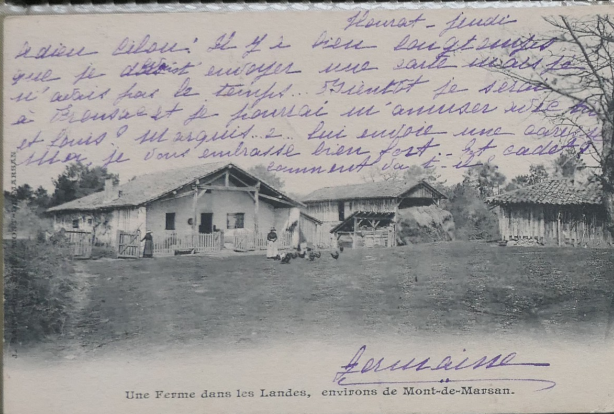 Hourat - jeudi
Adieu Lilou! Il y a bien longtemps
que je dois t'envoyer une carte mais je
n'avais pas le temps... Bientôt je serai
à Brousset je pourrai m'amuser avec
et Louis? Marquis.. lui envoie une caresse
Moi je vous embrasse bien fort. Et Cadet
comment va-t-il
Germaine
Une Ferme dans les Landes, environs de Mont-de-Marsan.